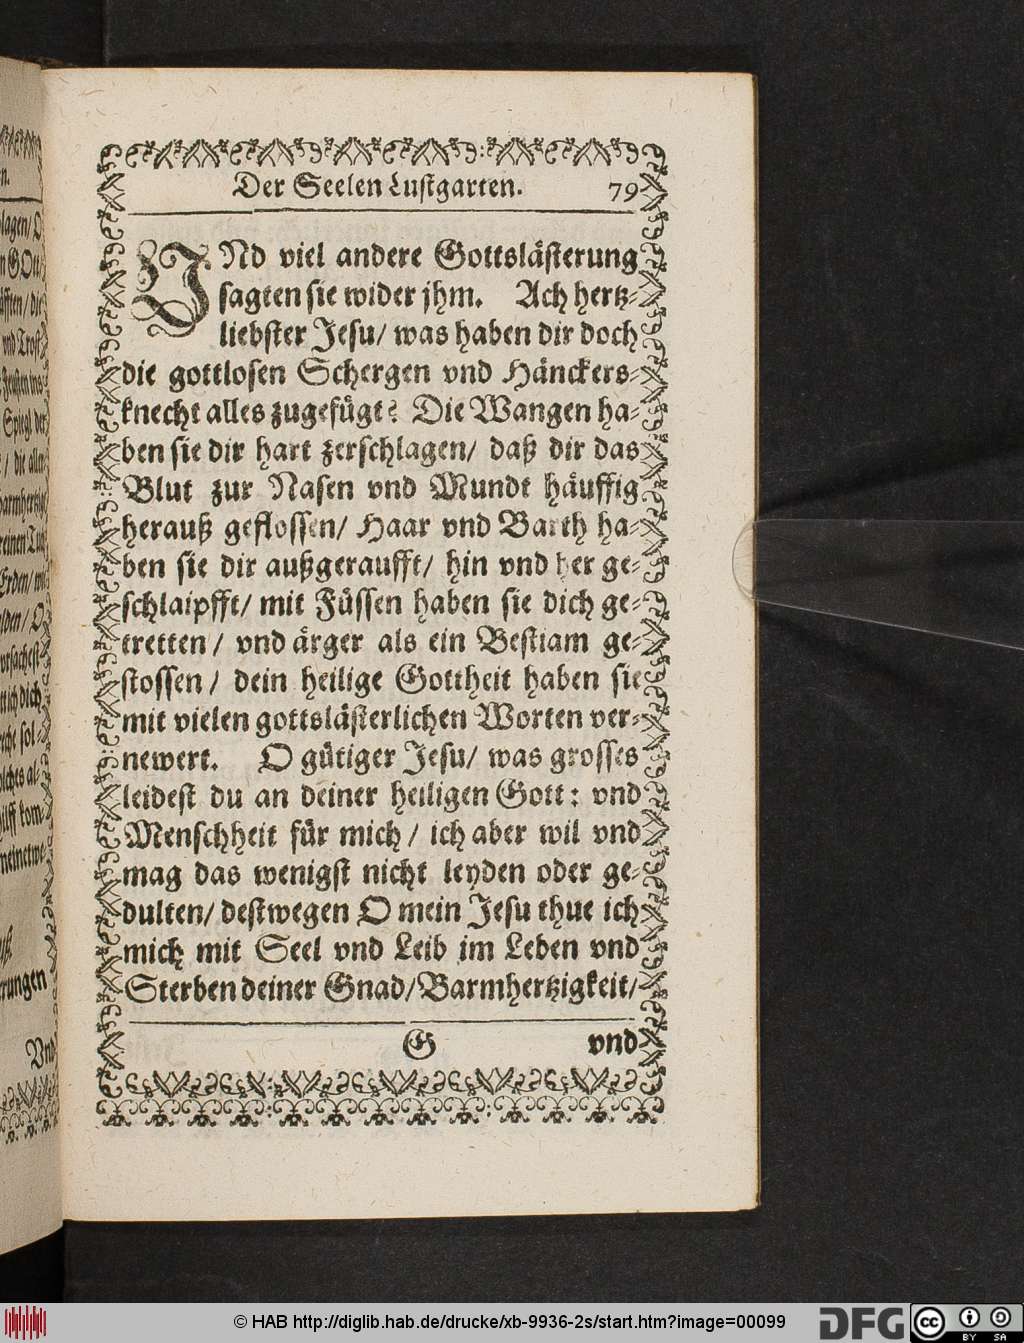 Der Seelen Lustgarten. 79
VNd viel andere Gottslästerung
sagten sie wider jhm. Ach hertz-
liebster Jesu/ was haben dir doch
die gottlosen Schergen vnd Hänckers-
knecht alles zugefügt? Die Wangen ha-
ben sie dir hart zerschlagen/ daß dir das
Blut zur Nasen vnd Mundt häuffig
herauß geflossen/ Haar vnd Barth ha-
ben sie dir außgeraufft/ hin vnd her ge-
schlaipfft/ mit Füssen haben sie dich ge-
tretten/ vnd ärger als ein Bestiam ge-
stossen/ dein heilige Gottheit haben sie
mit vielen gottslästerlichen Worten ver-
newert. O gütiger Jesu/ was grosses
leidest du an deiner heiligen Gott: vnd
Menschheit für mich/ ich aber wil vnd
mag das wenigst nicht leyden oder ge-
dulten/ destwegen O mein Jesu thue ich
mich mit Seel vnd Leib im Leben vnd
Sterben deiner Gnad/ Barmhertzigkeit/
G vnd
© HAB http://diglib.hab.de/drucke/xb-9936-2s/start.htm?image=00099
DFG cc BY SA